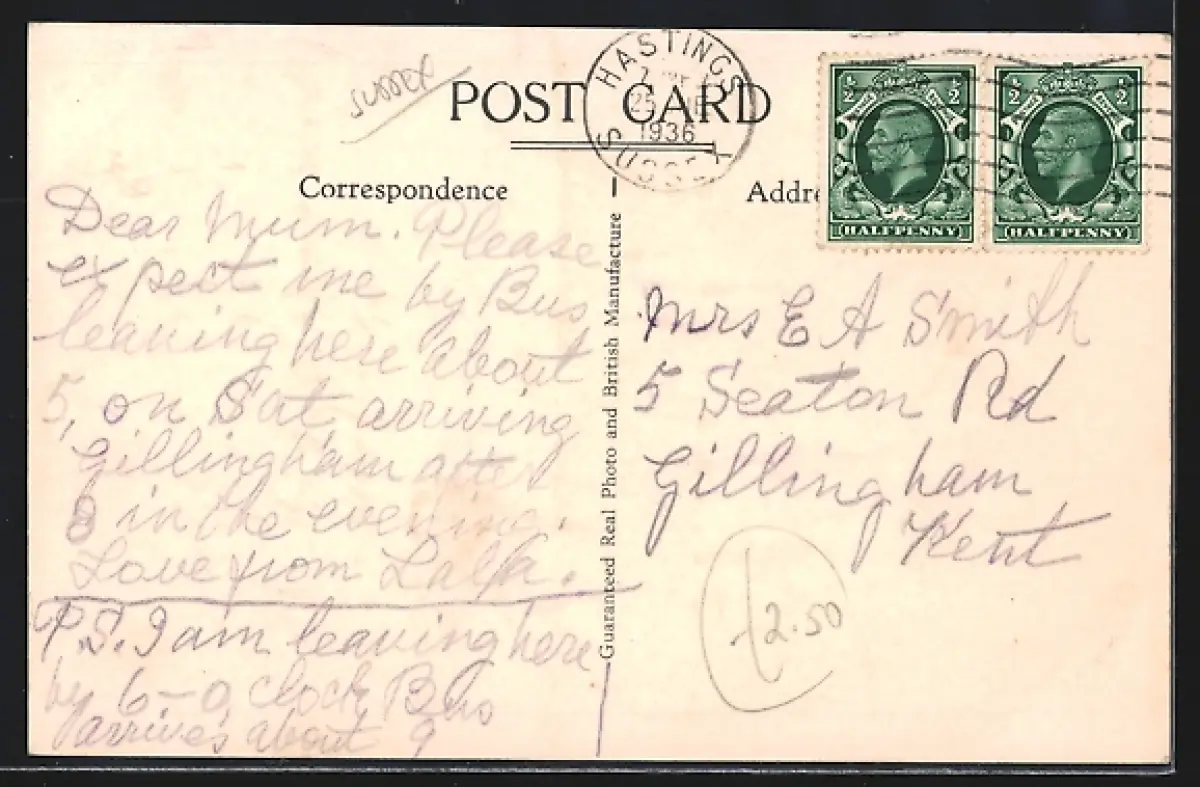 SUSSEX
POST CARD
HASTINGS
25
1936
SUSSEX
1/2 1/2
HALFPENNY
1/2 1/2
HALFPENNY
Correspondence
Addre
Dear Mum. Please
expect me by Bus
leaving here about
5, on Sat arriving
Gillingham after
8 in the evening.
Love from
P.S. I am leaving here
by 6-o clock Bus
arrives about 9
Guaranteed Real Photo and British Manufacture
Mrs E A Smith
5 Seaton Rd
Gillingham
Kent
2.50